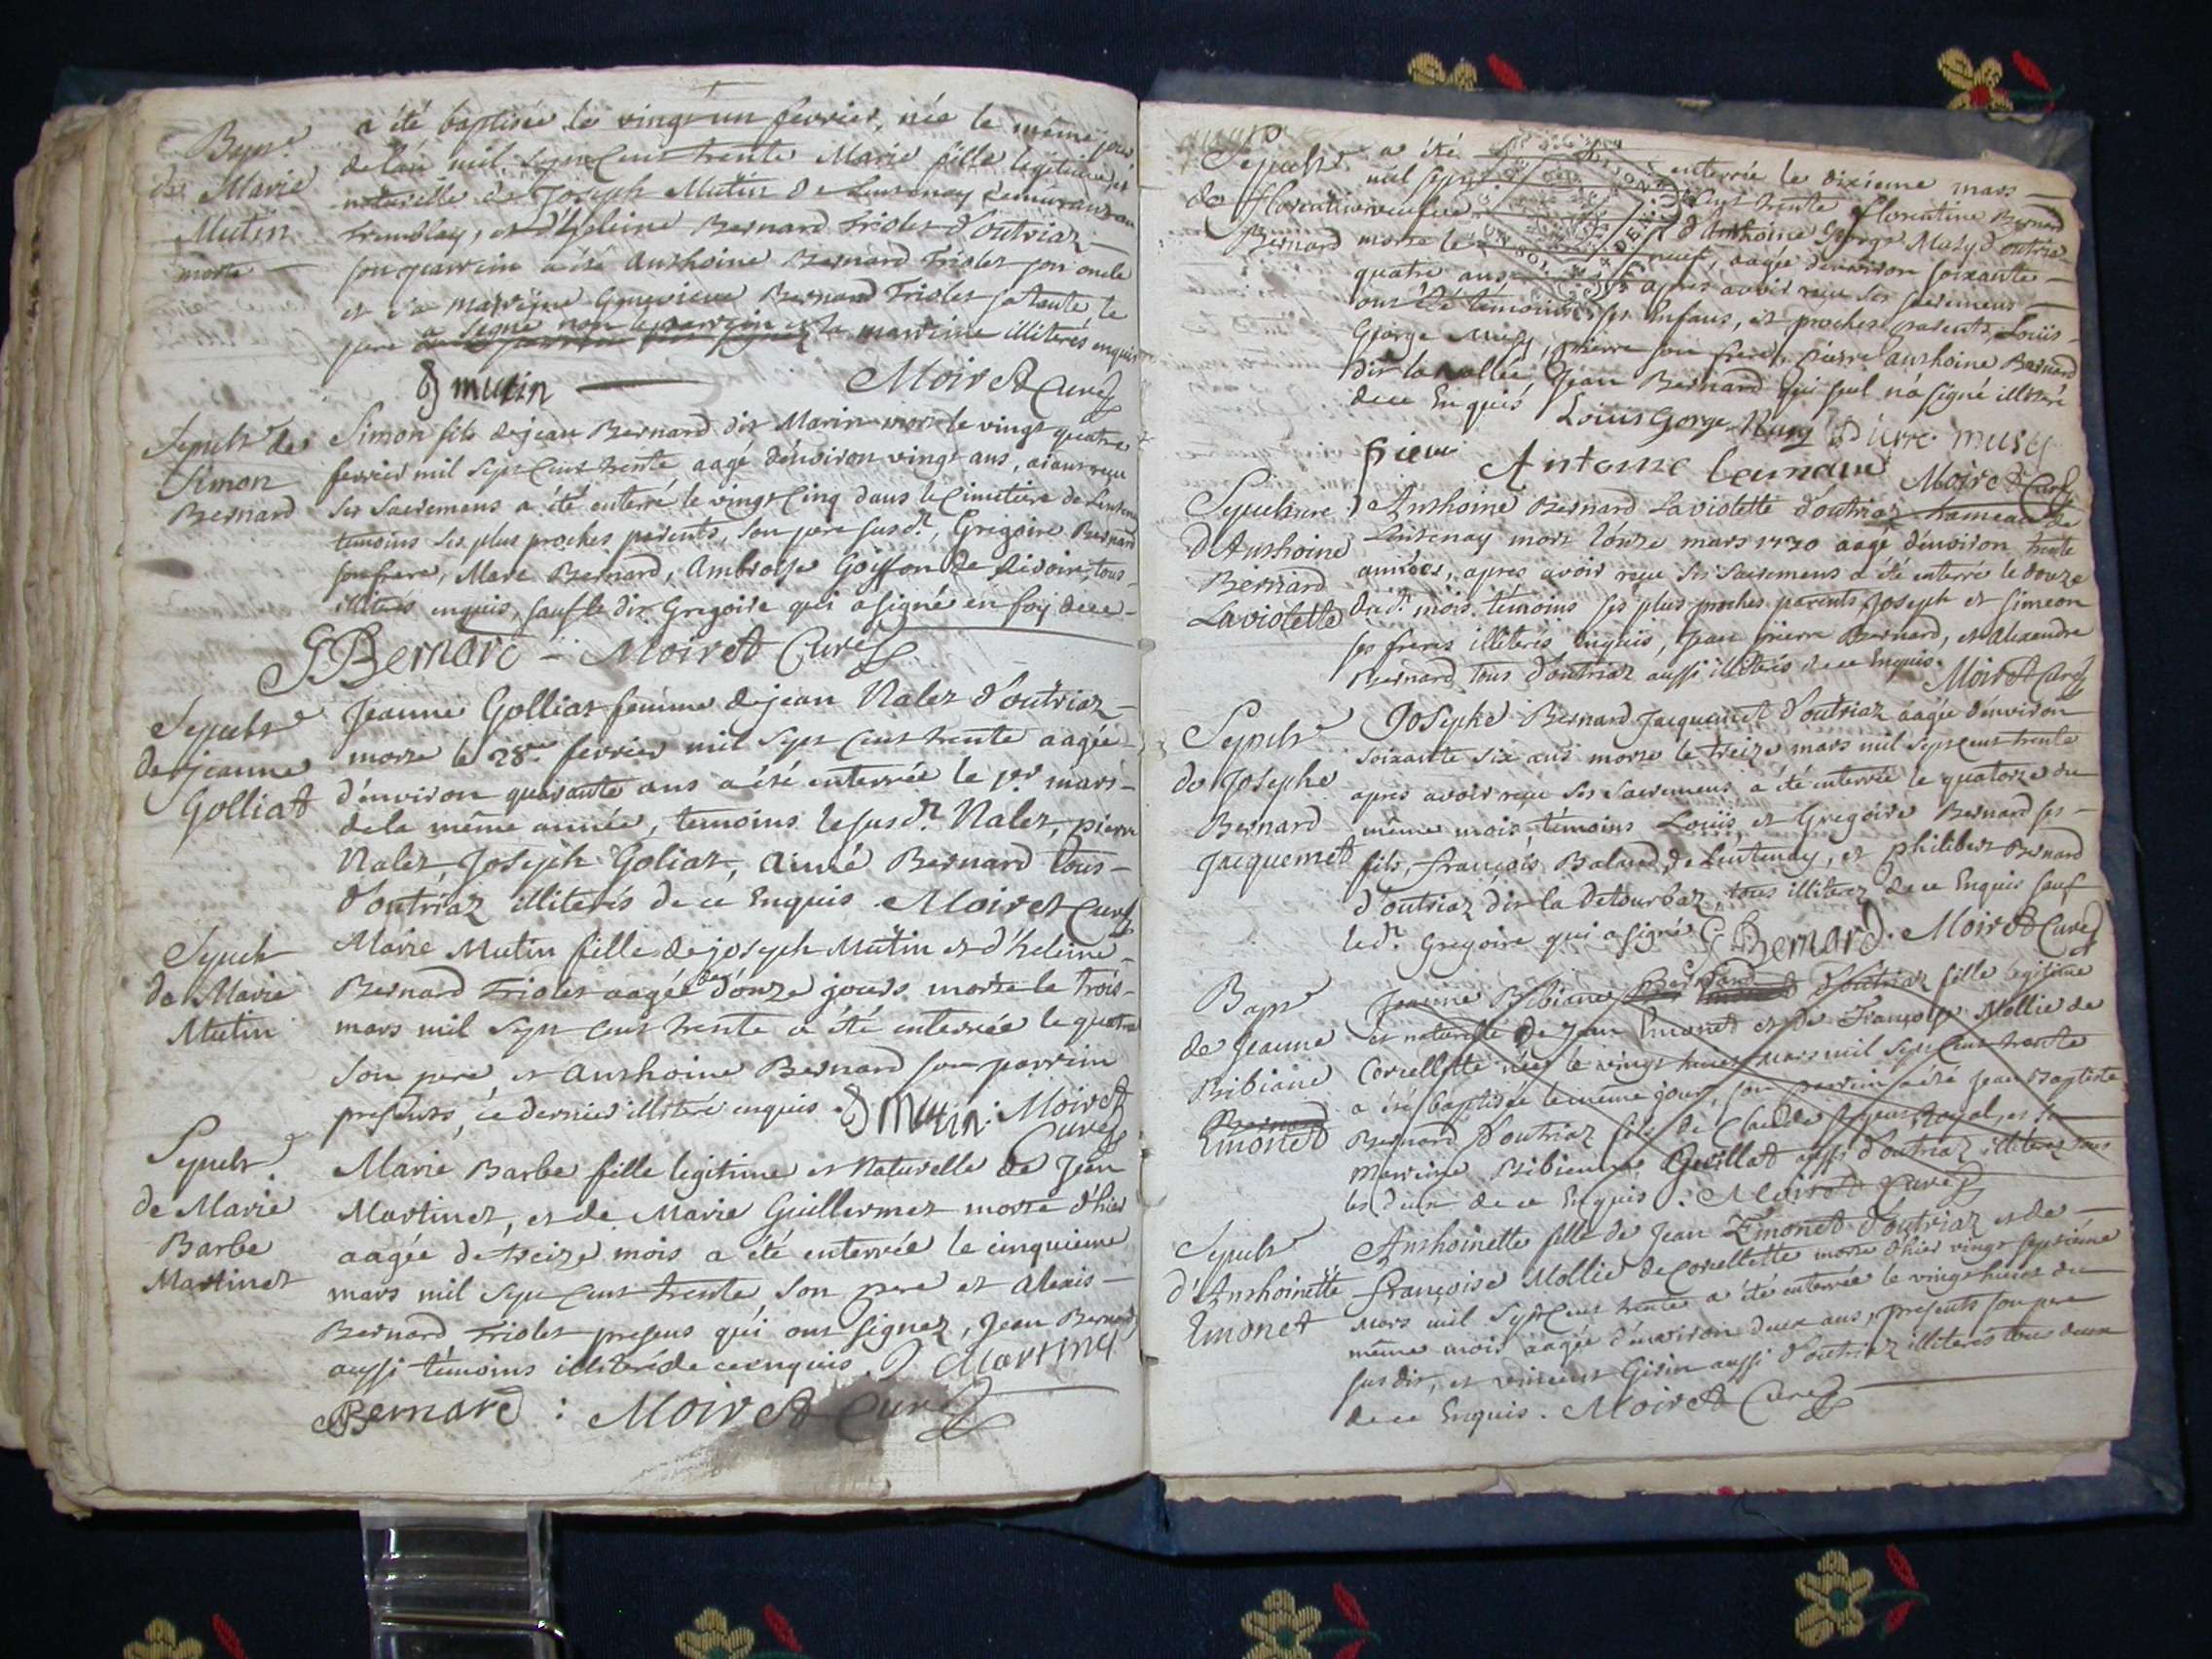 Bapt.
de Marie
Mutin
morte
a été baptisée le vingt un fevrier, née le même jour
de l'an mil sept cent trente Marie fille legitime et
naturelle de Joseph Mutin de Lentenay demeurant au
tremblay, et d'heleine Bernard Triolet d'outriaz
son parrein a été Anthoine Bernard Triolet son oncle
et sa marreine Genevieve Bernard Triolet sa tante le
pere a signé non le parrein et la marreine illiterés enquis
J mutin Moiret Curé
Sepult. de
Simon
Bernard
Simon fils de jean Bernard dit Marin mort le vingt quatre
fevrier mil sept cent trente, aagé d'environ vingt ans, aiant reçu
ses Sacremens a été enterré le vingt cinq dans le cimetiere de
temoins ses plus proches parents, son pere susdt, Gregoire Bernard
son frere, Marc Bernard, Ambroise Goisson de tous
illiterés enquis, sauf le dit Gregoire qui a signé en foy de ce
G Bernard Moiret Curé
Sepult.
de jeanne
Golliat
Jeanne Golliat femme de jean Nalet d'outriaz
morte le 28me fevrier mil sept cent trente aagée
d'environ quarante ans a été enterrée le per mars
de la même année, temoins le susdt Nalet, pierre
Nalet, Joseph Goliat, Aimé Bernard tous
d'outriaz illiterés de ce Enquis Moiret Curé
Sepult
de Marie
Mutin
Marie Mutin fille de joseph Mutin et d'heleine
Bernard Triolet aagée de d'onze jours morte le trois
mars mil sept cent trente a été enterrée le quatre
Son pere, et Anthoine Bernard son parrein
presents, ce dernier illiteré enquis J Mutin Moiret
Curé
Sepult.
de Marie
Barbe
Martinet
Marie Barbe fille legitime et Naturelle de Jean
Martinet, et de Marie Guillermet morte d'hier
aagée de treize mois a été enterrée le cinquieme
mars mil sept cent trente Son pere et Alexis
Bernard Triolet presens qui ont signez, Jean Bernard
aussi témoins illiteré de ce enquis J Martinet
ABernard : Moiret Curé
Sepult.
de florentine
Bernard
a été enterrée le dixieme mars
mil sept cent trente florentine Bernard
d'Anthoine George Musy d'outriaz
morte le neuf, aagée d'environ soixante
quatre ans apres avoir reçu ses sacremens
ont été témoins ses Enfans, et proches parents, Louïs
George Musy, pierre son frere, pierre Anthoine Bernard
dit la vallée, Jean Bernard qui seul n'a signé illiteré
de ce Enquis Louis Gorge Musy Pierre musy
pieure Antoine bernard Moiret Curé
Sepulture
d'Anthoine
Bernard
Laviolette
Anthoine Bernard Laviolette d'outriaz hameau de
Lentenay mort l'onze mars 1730 aagé d'environ trente
années, apres avoir reçu ses sacremens a été enterré le douze
dudt. mois témoins ses plus proches parents Joseph et simeon
ses freres illiterés enquis, Jean pierre Bernard, et Alexandre
Bernard tous d'outriaz aussi illiterés de ce Enquis. Moiret Curé
Sepult.
de Josephe
Bernard
Jacquemet
Josephe Bernard Jacquemet d'outriaz aagée d'environ
soixante six ans morte le treize mars mil sept cent trente
apres avoir reçu ses Sacremens a été enterrée le quatorze du
même mois témoins Louïs, et Gregoire Bernard ses
fils, françois Baland de Lentenay, et philibert Bernard
d'outriaz dit la Detourbaz, tous illiterez de ce Enquis sauf
le dt. Gregoire qui a signé G Bernard. Moiret Curé
Bapt.
de Jeanne
Bibiane
Bernard
Emonet
Jeanne Bibiane Bernard d'outriaz fille legitime
et naturelle de Jean Emonet et de Françoise Mollie de
Corcellette née le vingt huict mars mil sept cent trente
a été baptisée le même jour, son parrein a été Jean Baptiste
Bernard d'outriaz fils de Claude Royal, et sa
Marreine Bibienne Guillat aussi d'outriaz illiterez tous
les deux de ce Enquis : Moiret Curé
Sepult.
d'Anthoinette
Emonet
Anthoinette fille de Jean Emonet d'outriaz et de
françoise Mollie de Corcellette morte d'hier vingt septième
Mars mil Sept cent trente a été enterrée le vingt huict du
même mois aagée d'environ deux ans, presents son pere
susdit, et vincent Girin aussi d'outriaz illiterés tous deux
de ce Enquis. Moiret Curé